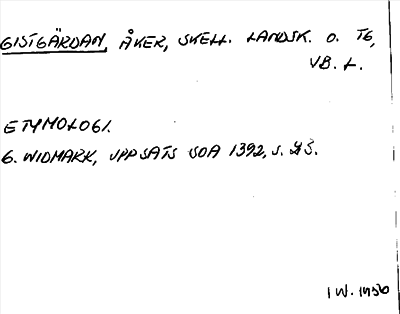 GISTGÄRDAN, ÅKER, SKELL. LANDSK. O. TG,
VB. L.
ETYMOLOGI.
G. WIDMARK, UPPSATS SOA 1392, S.
I W. 1956